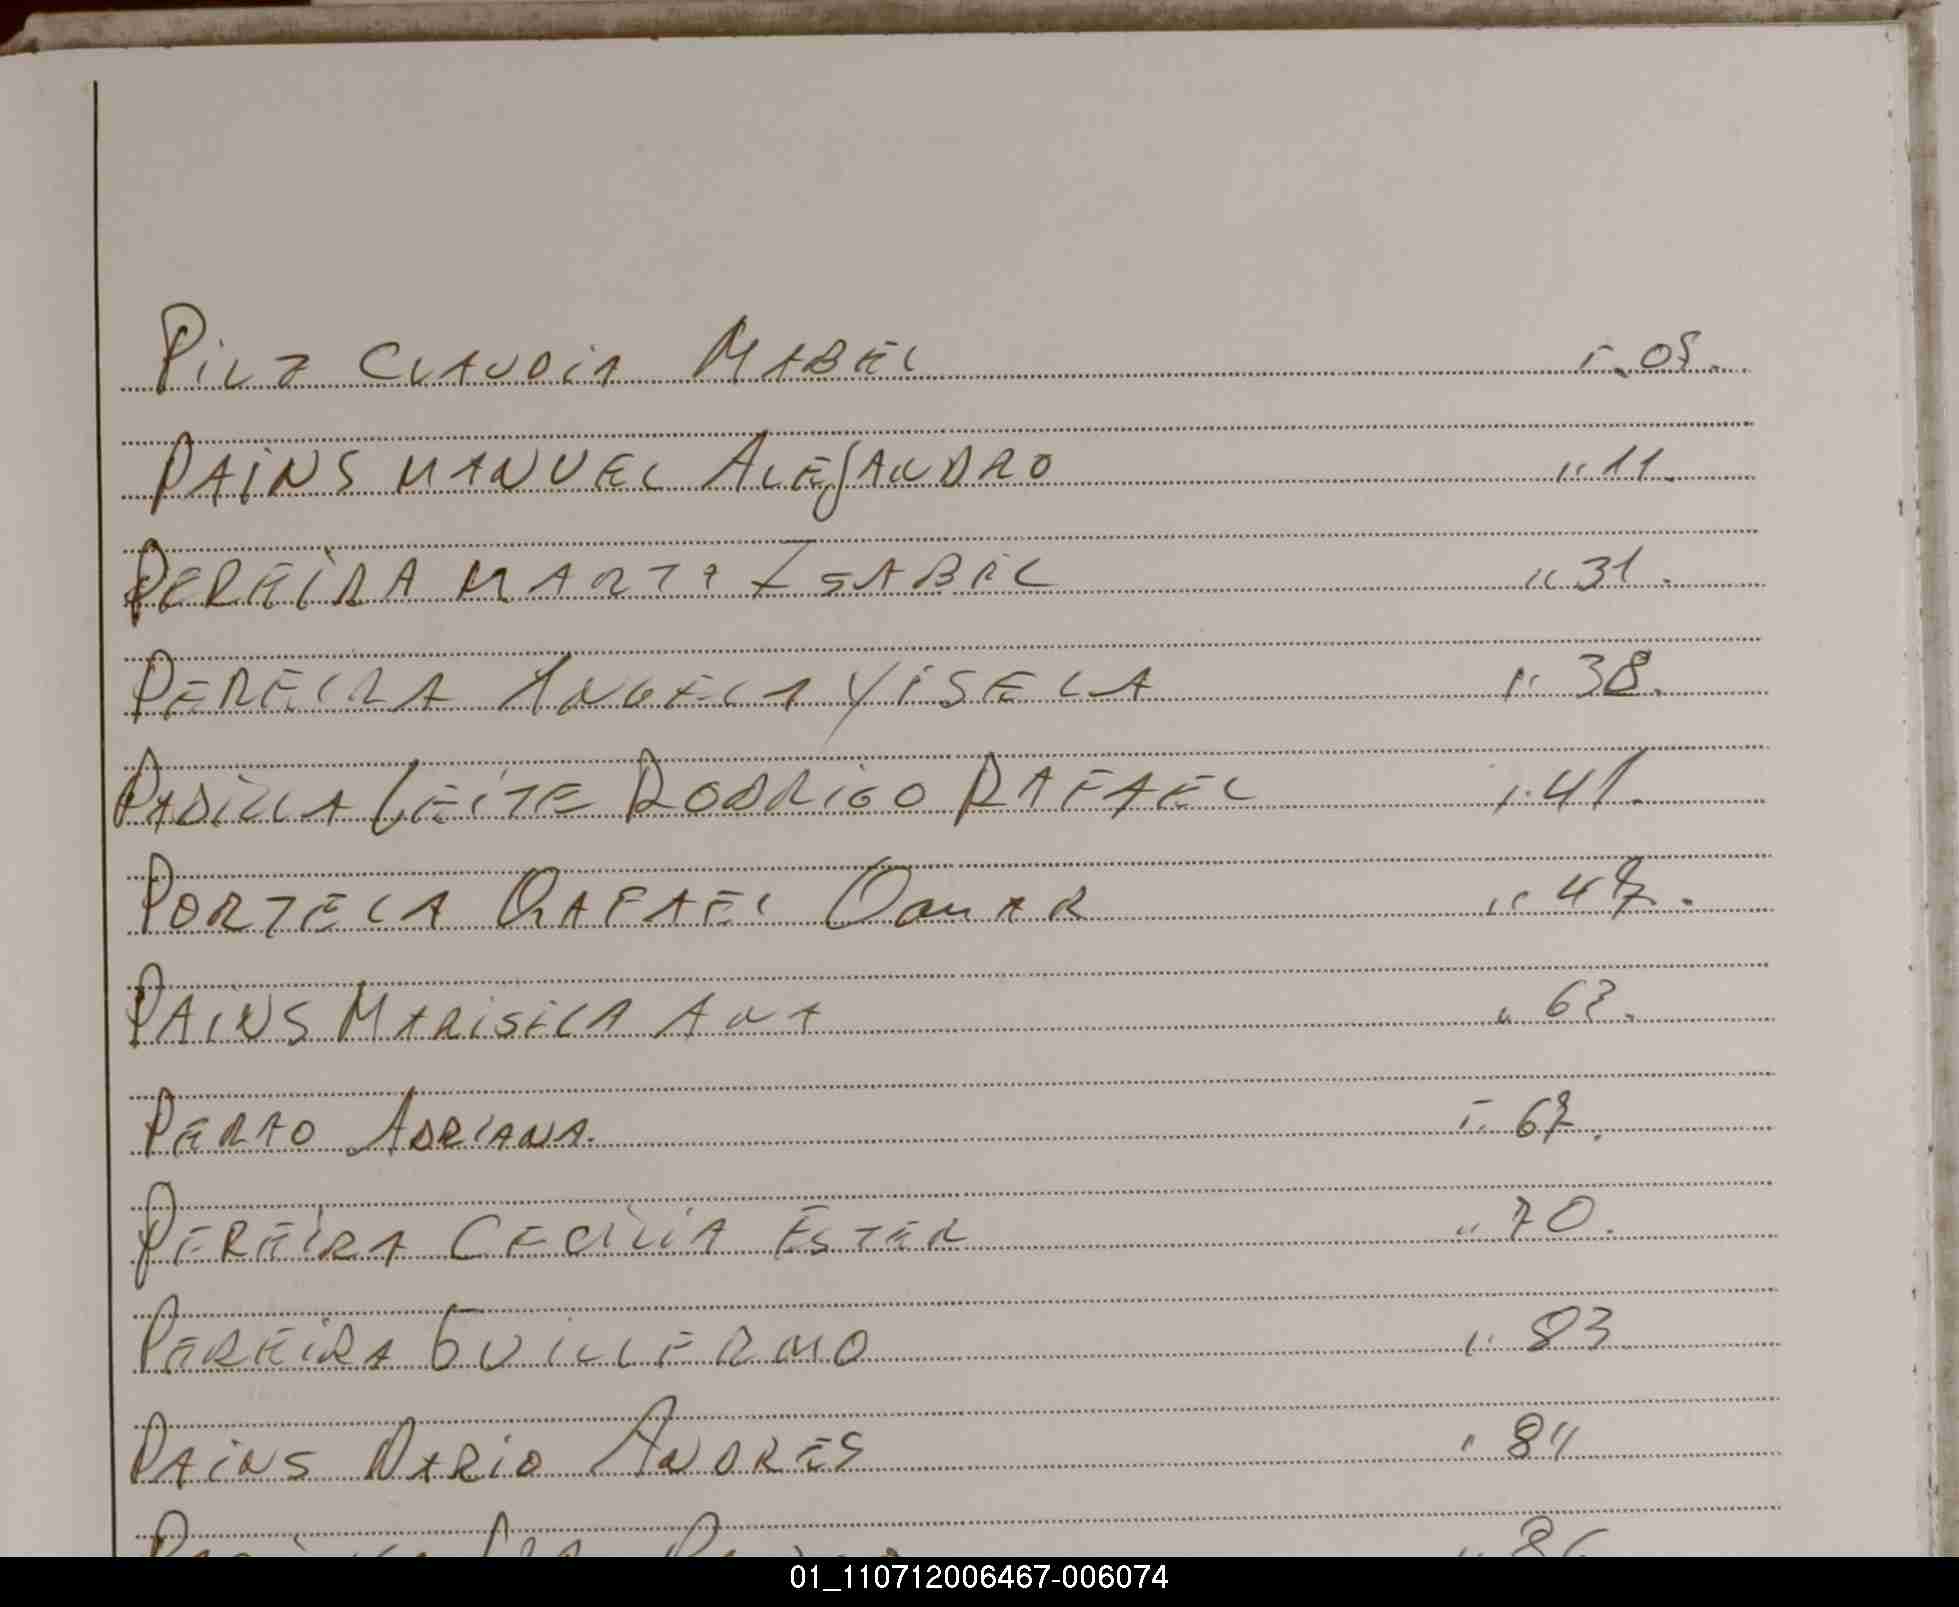 PILZ CLAUDIA MABEL " 05.
PAINS MANUEL ALEJANDRO " 11.
PEREIRA MARTA ISABEL " 31.
PEREIRA ANGELA YISELA " 38.
PADILLA LEITE RODRIGO RAFAEL " 41.
PORTELA RAFAEL OMAR " 47.
PAINS MARISELA ANA " 63.
PERAO ADRIANA. " 67.
PEREIRA CECILIA ESTER " 70.
PEREIRA GUILLERMO " 83
PAINS DARIO ANDRES " 84
01_110712006467-006074